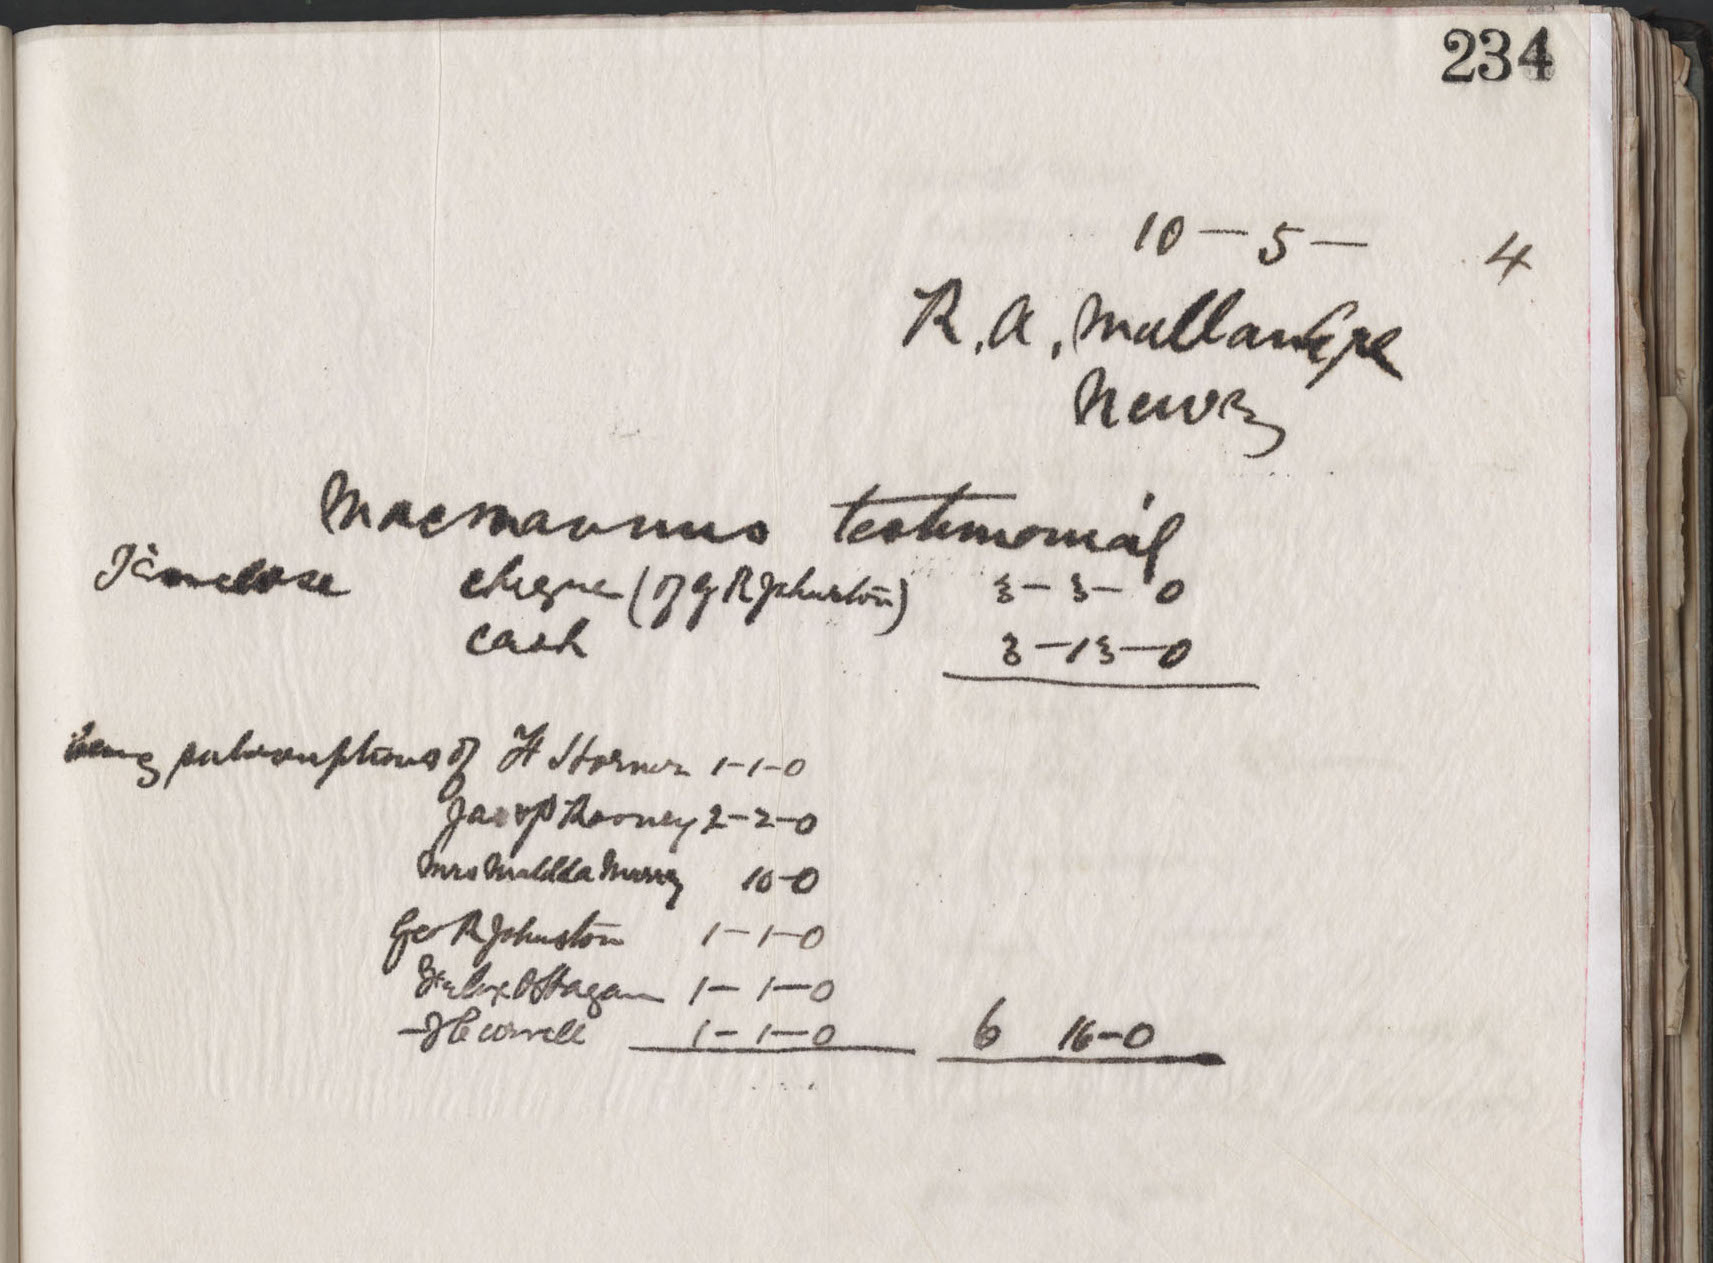 234
10 - 5 - 4
R. A. Mullan Esqre
Newry
MacManus testimonial
I enclose cheque (of G R Johnston) 3 - 3 - 0
cash 3 - 13 - 0
being subscriptions of F Horner 1-1-0
Jas Rooney 2-2-0
Mrs Matilda Murray 10-0
Geo R Johnston 1-1-0
Felix O'Hagan 1-1-0
1-1-0 6 16-0